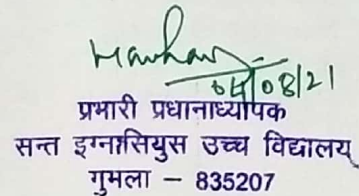 04/08/21
प्रभारी प्रधानाध्यापक
सन्त इग्नासियुस उच्च विद्यालय
गुमला - 835207